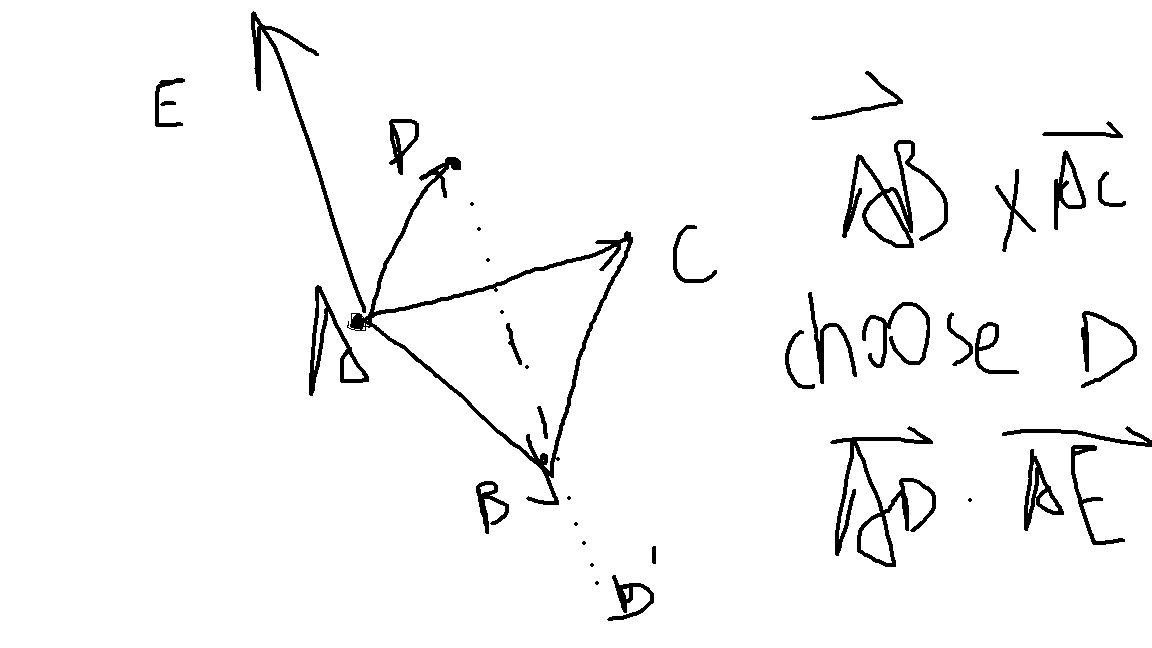 E
D
C
A
B
D'
AB × AC
choose D
AD · AE